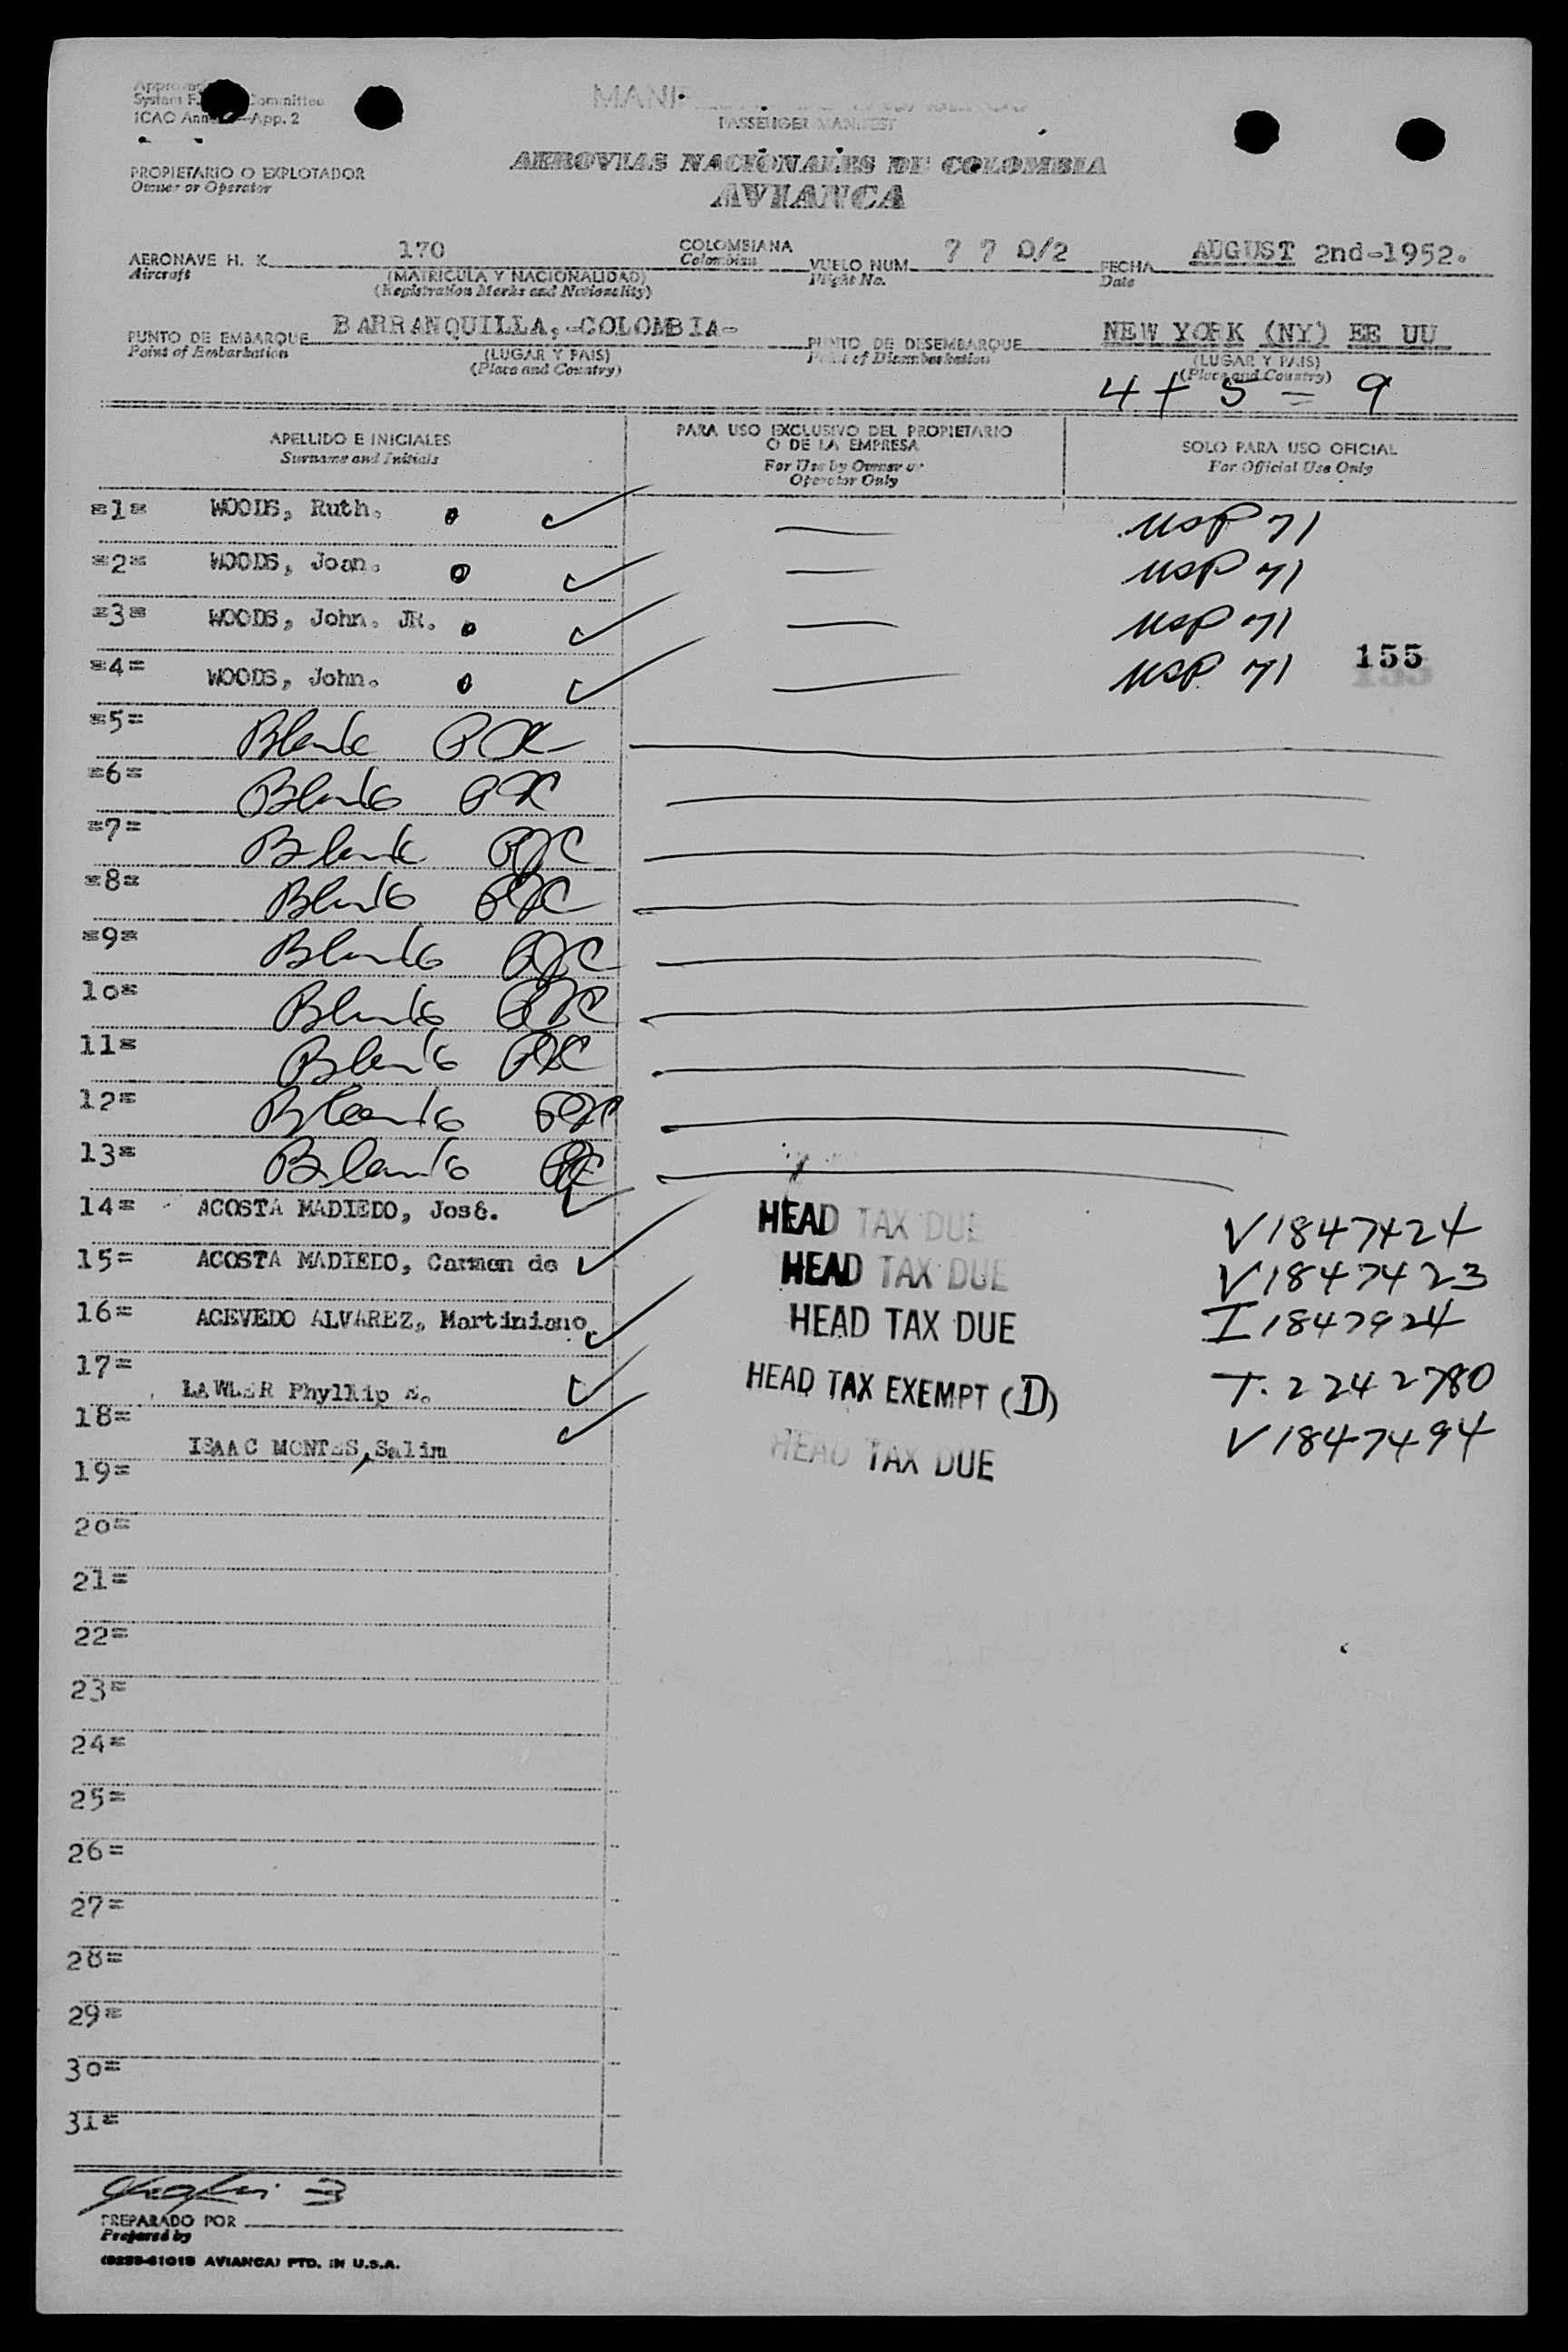 Approved
System F. Committee
ICAO App. 2
PASSENGER MANIFEST
PROPIETARIO O EXPLOTADOR
Owner or Operator
AEROVIAS NACIONALES DE COLOMBIA
AVIANCA
AERONAVE H. K. 170 COLOMBIANA VUELO NUM. 7 7 0/2 FECHA AUGUST 2nd-1952.
Aircraft (MATRICULA Y NACIONALIDAD) Colombian Flight No. Date
(Registration Marks and Nationality)
PUNTO DE EMBARQUE BARRANQUILLA,-COLOMBIA- PUNTO DE DESEMBARQUE NEW YORK (NY) EE UU
Point of Embarkation (LUGAR Y PAIS) Point of Disembarkation (LUGAR Y PAIS)
(Place and Country) (Place and Country)
4 + 5 = 9
APELLIDO E INICIALES PARA USO EXCLUSIVO DEL PROPIETARIO O DE LA EMPRESA SOLO PARA USO OFICIAL
Surname and Initials For Use by Owner or Operator Only For Official Use Only
=1= WOODS, Ruth. USP 71
=2= WOODS, Joan. USP 71
=3= WOODS, John. JR. USP 71
=4= WOODS, John. USP 71 155
=5= Blank
=6= Blank
=7= Blank
=8= Blank
=9= Blank
10= Blank
11= Blank
12= Blank
13= Blank
14= ACOSTA MADIEDO, José. HEAD TAX DUE V1847424
15= ACOSTA MADIEDO, Carmen de HEAD TAX DUE V1847423
16= ACEVEDO ALVAREZ, Martiniano HEAD TAX DUE I1847924
17= LAWLER Phyllip HEAD TAX EXEMPT (D) T. 2242780
18= ISAAC MONTES, Salim HEAD TAX DUE V1847494
19=
20=
21=
22=
23=
24=
25=
26=
27=
28=
29=
30=
31=
PREPARADO POR
Prepared by
AVIANCA) PTD. IN U.S.A.